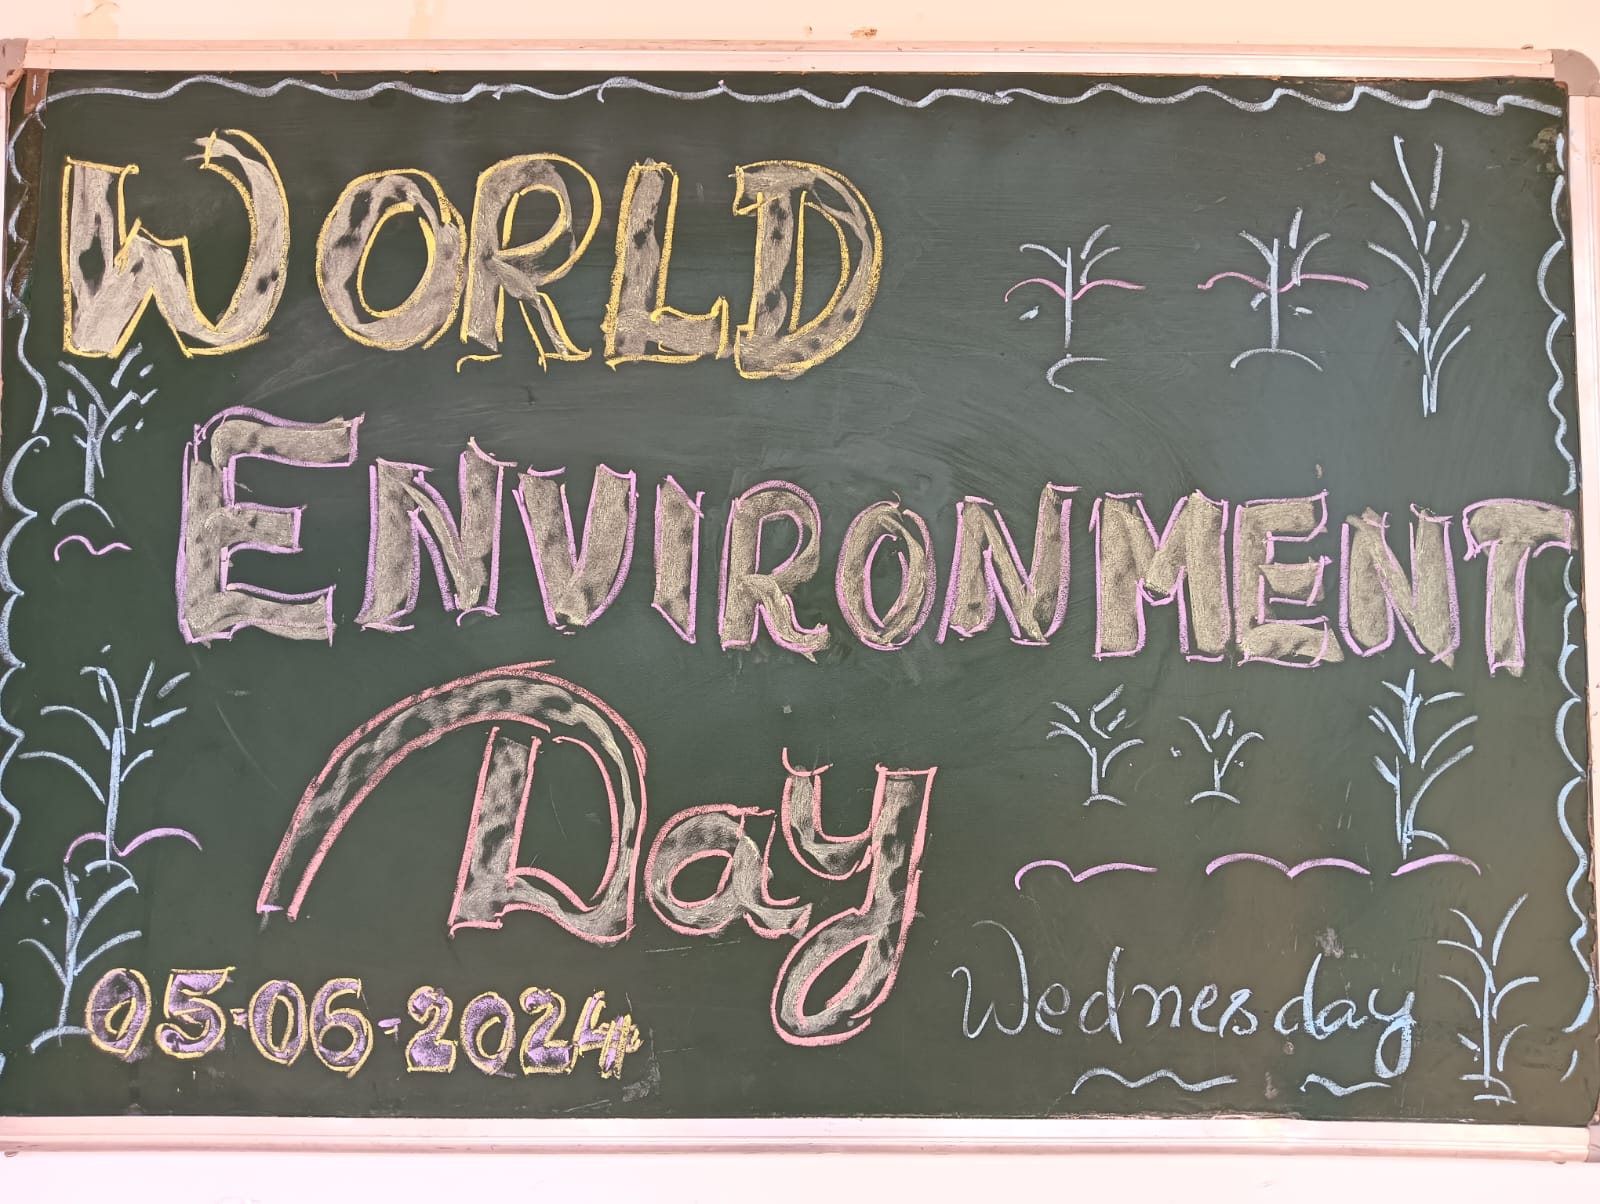 WORLD
ENVIRONMENT
Day
05-06-2024
Wednesday